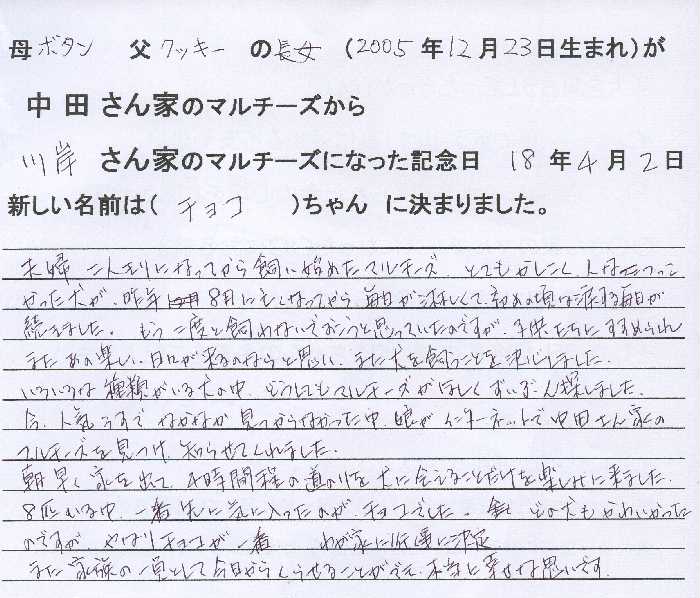 母ボタン 父クッキー の長女 (2005年12月23日生まれ)が
中田さん家のマルチーズから
川岸 さん家のマルチーズになった記念日 18年4月2日
新しい名前は( チョコ )ちゃん に決まりました。
夫婦二人きりになってから飼い始めたマルチーズ、とてもかしこく、人なつっこ
かった犬が、昨年8月に亡くなってから、毎日が淋しくて、初めの頃は涙する毎日が
続きました。もう二度と飼わないでおこうと思っていたのですが、子供たちにすすめられ
またあの楽しい日々が来るのならと思い、また犬を飼うことを決心しました。
いろいろな種類がいる犬の中、どうしてもマルチーズがほしくずいぶん探しました。
今、人気うすでなかなか見つからなかった中、娘がインターネットで中田さん家の
マルチーズを見つけ、知らせてくれました。
朝早く家を出て、4時間程の道のりを犬に会えることだけを楽しみに来ました。
8匹いる中、一番先に気に入ったのが、チョコでした。どの犬もかわいかった
のですが、やはりチョコが一番 わが家に 決定
また家族の一員として今日からくらせることが 本当に幸せな思います。